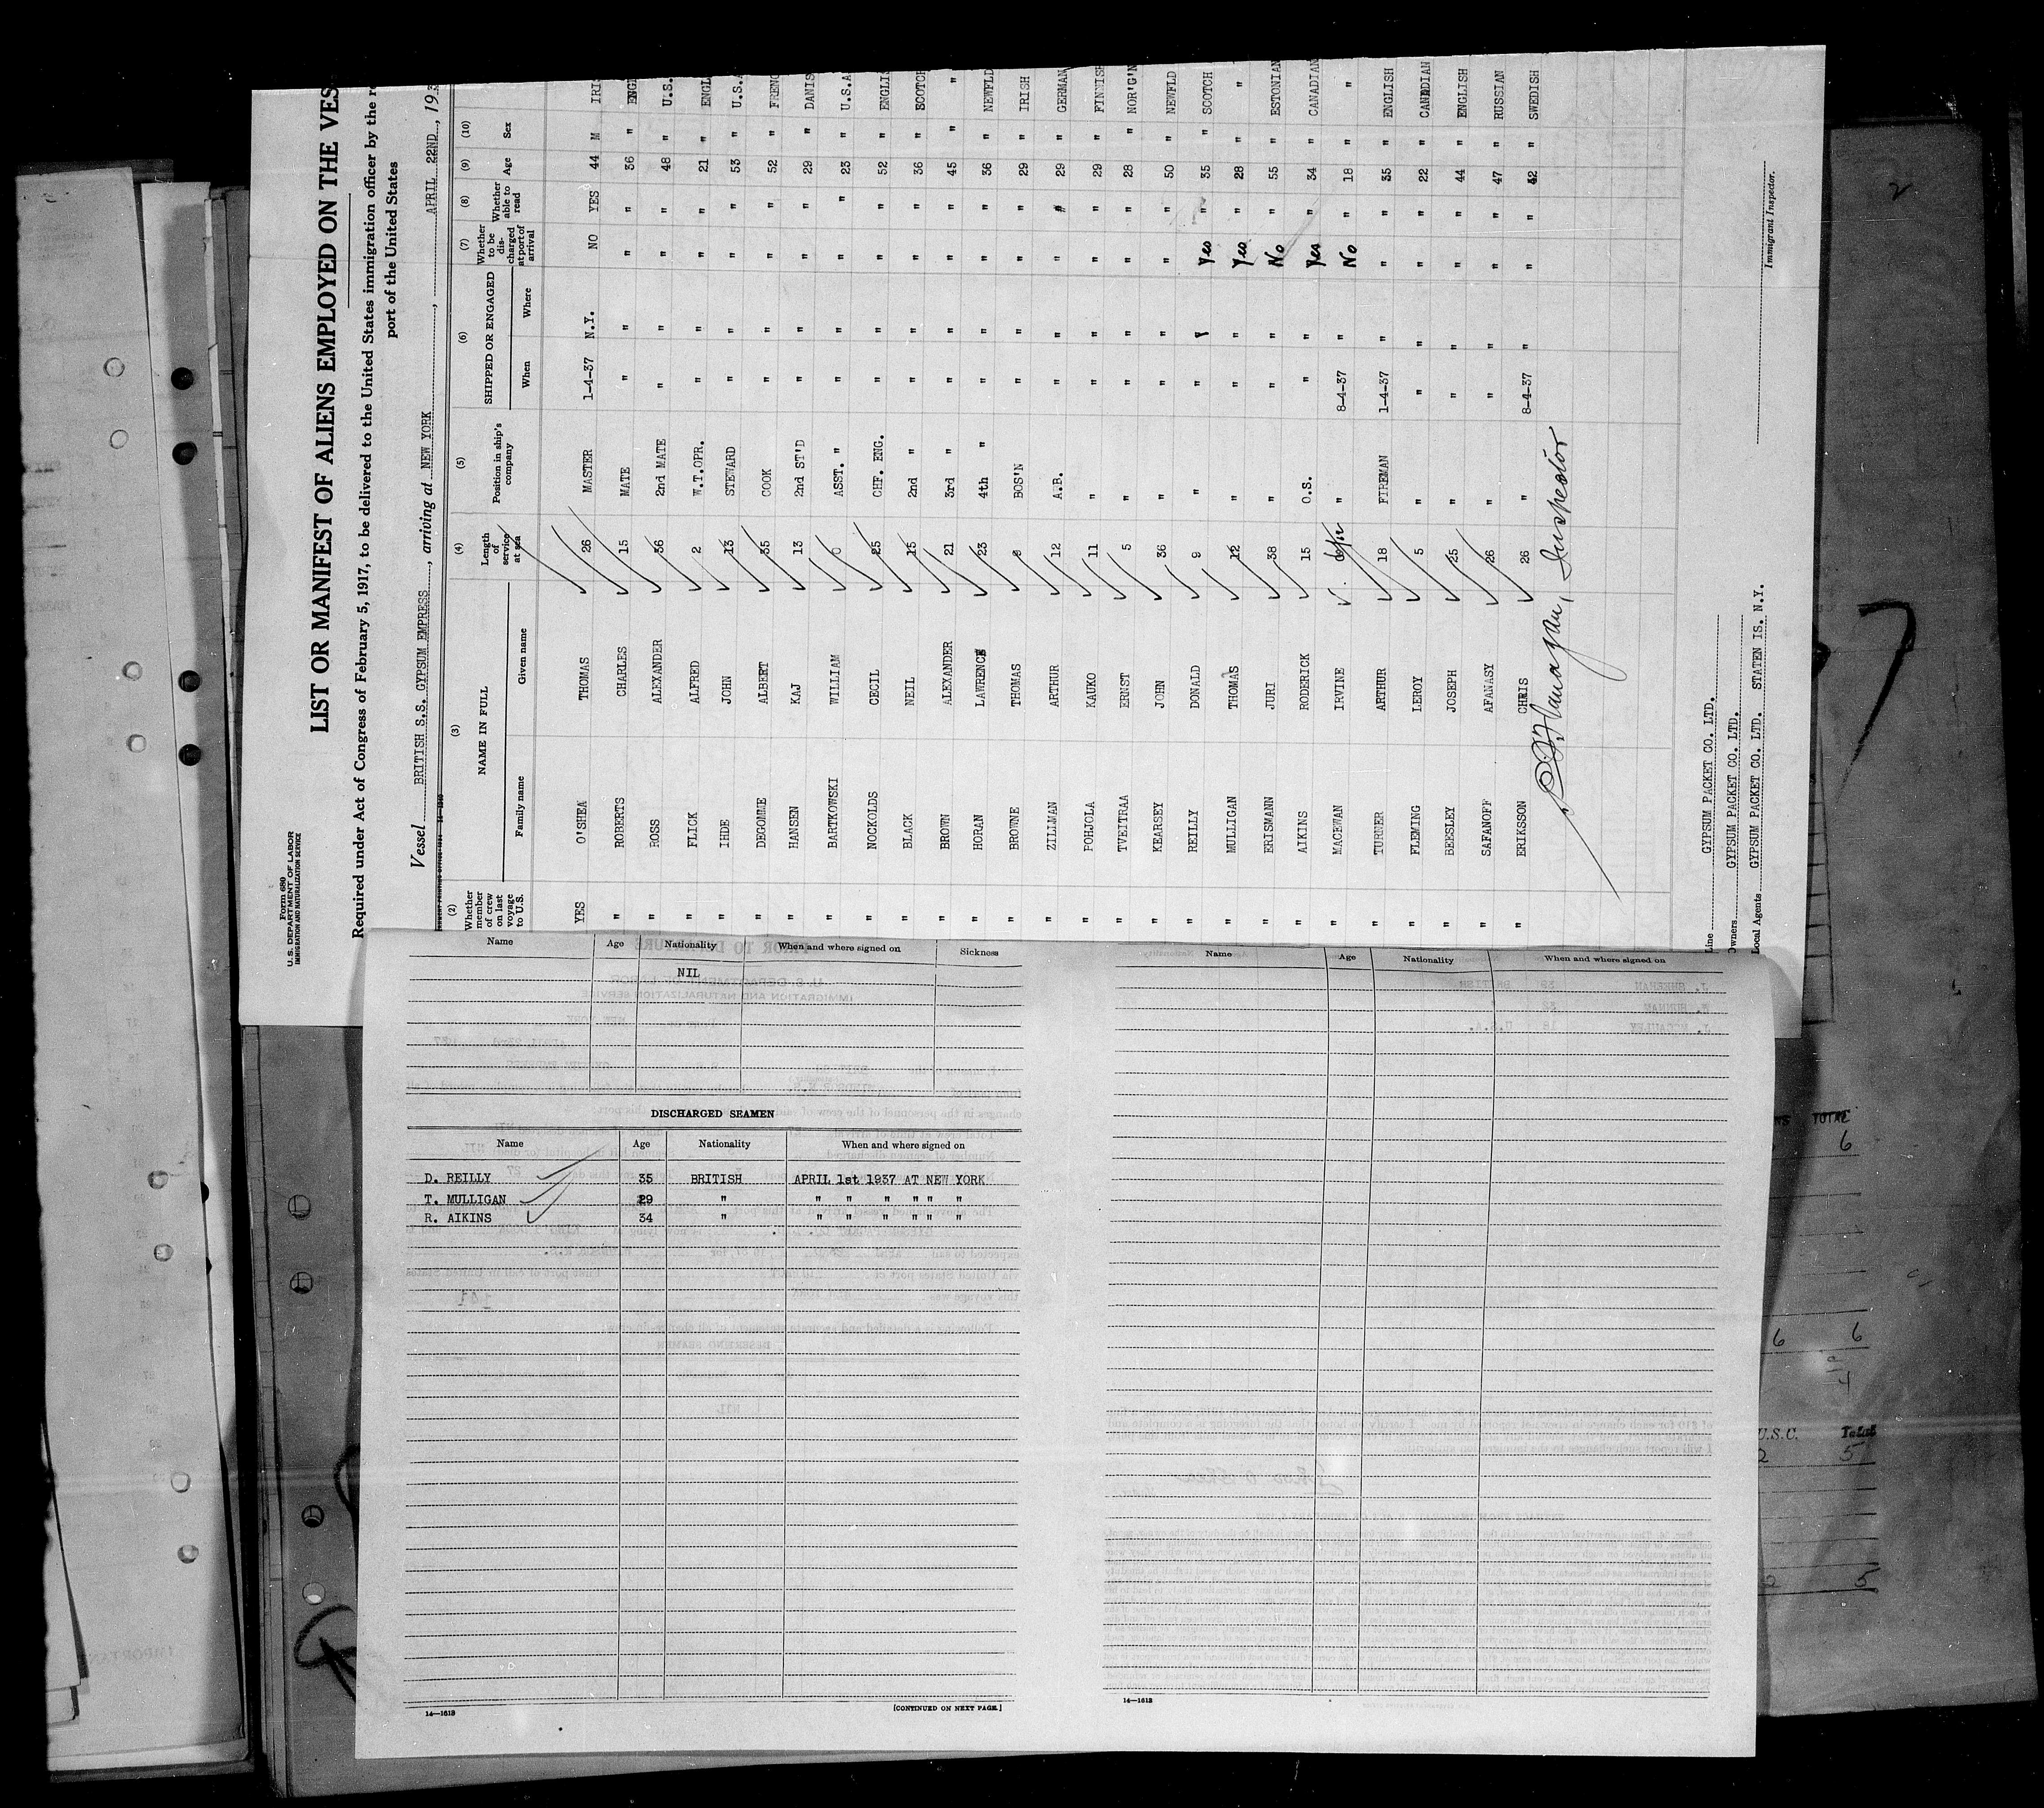 Form 680
U. S. DEPARTMENT OF LABOR
IMMIGRATION AND NATURALIZATION SERVICE
LIST OR MANIFEST OF ALIENS EMPLOYED ON THE VES
Required under Act of Congress of February 5, 1917, to be delivered to the United States immigration officer by the re
port of the United States
Vessel BRITISH S.S. GYPSUM EMPRESS, arriving at NEW YORK, APRIL 22ND, 193
(2) (3) (4) (5) (6) (7) (8) (9) (10)
Whether member of crew on last voyage to U.S. NAME IN FULL Length of service at sea Position in ship's company SHIPPED OR ENGAGED Whether to be discharged at port of arrival Whether able to read Age Sex
Family name Given name When Where
YES O'SHEA THOMAS 26 MASTER 1-4-37 N.Y. NO YES 44 M IRIS
" ROBERTS CHARLES 15 MATE " " " " 36 " ENGL
" ROSS ALEXANDER 36 2nd MATE " " " " 48 " U.S.
" FLICK ALFRED 2 W.T.OPR. " " " " 21 " ENGL
" IHDE JOHN 13 STEWARD " " " " 53 " U.S.A
" DEGOMME ALBERT 35 COOK " " " " 52 " FRENC
" HANSEN KAJ 13 2nd ST'D " " " " 29 " DANIS
" BARTKOWSKI WILLIAM 0 ASST. " " " " " 23 " U.S.A.
" NOCKOLDS CECIL 25 CHF. ENG. " " " " 52 " ENGLIS
" BLACK NEIL 15 2nd " " " " " 36 " SCOTCH
" BROWN ALEXANDER 21 3rd " " " " " 45 " "
" HORAN LAWRENCE 23 4th " " " " " 36 " NEWFLD
" BROWNE THOMAS 9 BOS'N " " " " 29 " IRISH
" ZILLMAN ARTHUR 12 A.B. " " " " 29 " GERMAN
" POHJOLA KAUKO 11 " " " " " 29 " FINNISH
" TVEITRAA ERNST 5 " " " " " 28 " NOR'G'N
" KEARSEY JOHN 36 " " " " " 50 " NEWFLD
" REILLY DONALD 9 " " " Yes " 35 " SCOTCH
" MULLIGAN THOMAS 12 " " " Yes " 28 " "
" ERISMANN JURI 38 " " " No " 55 " ESTONIAN
" AIKINS RODERICK 15 O.S. " " Yes " 34 " CANADIAN
" MACEWAN IRVINE " 8-4-37 " No " 18 " "
" TURNER ARTHUR 18 FIREMAN 1-4-37 " " " 35 " ENGLISH
" FLEMING LEROY 5 " " " " " 22 " CANADIAN
" BEESLEY JOSEPH 25 " " " " " 44 " ENGLISH
" SAFANOFF AFANASY 26 " " " " " 47 " RUSSIAN
" ERIKSSON CHRIS 26 " 8-4-37 " " " 42 " SWEDISH
Flanagan, Inspector
Line GYPSUM PACKET CO. LTD.
Owners GYPSUM PACKET CO. LTD.
Local Agents GYPSUM PACKET CO. LTD. STATEN IS. N.Y.
Immigrant Inspector.
Name Age Nationality When and where signed on Sickness
NIL
DISCHARGED SEAMEN
Name Age Nationality When and where signed on
D. REILLY 35 BRITISH APRIL 1st 1937 AT NEW YORK
T. MULLIGAN 29 " " " " " " "
R. AIKINS 34 " " " " " " "
14—1613
[CONTINUED ON NEXT PAGE.]
Name Age Nationality When and where signed on
14—1613
2
7
TOTAL
6
6 6
4
U.S.C. Total
2 5
5